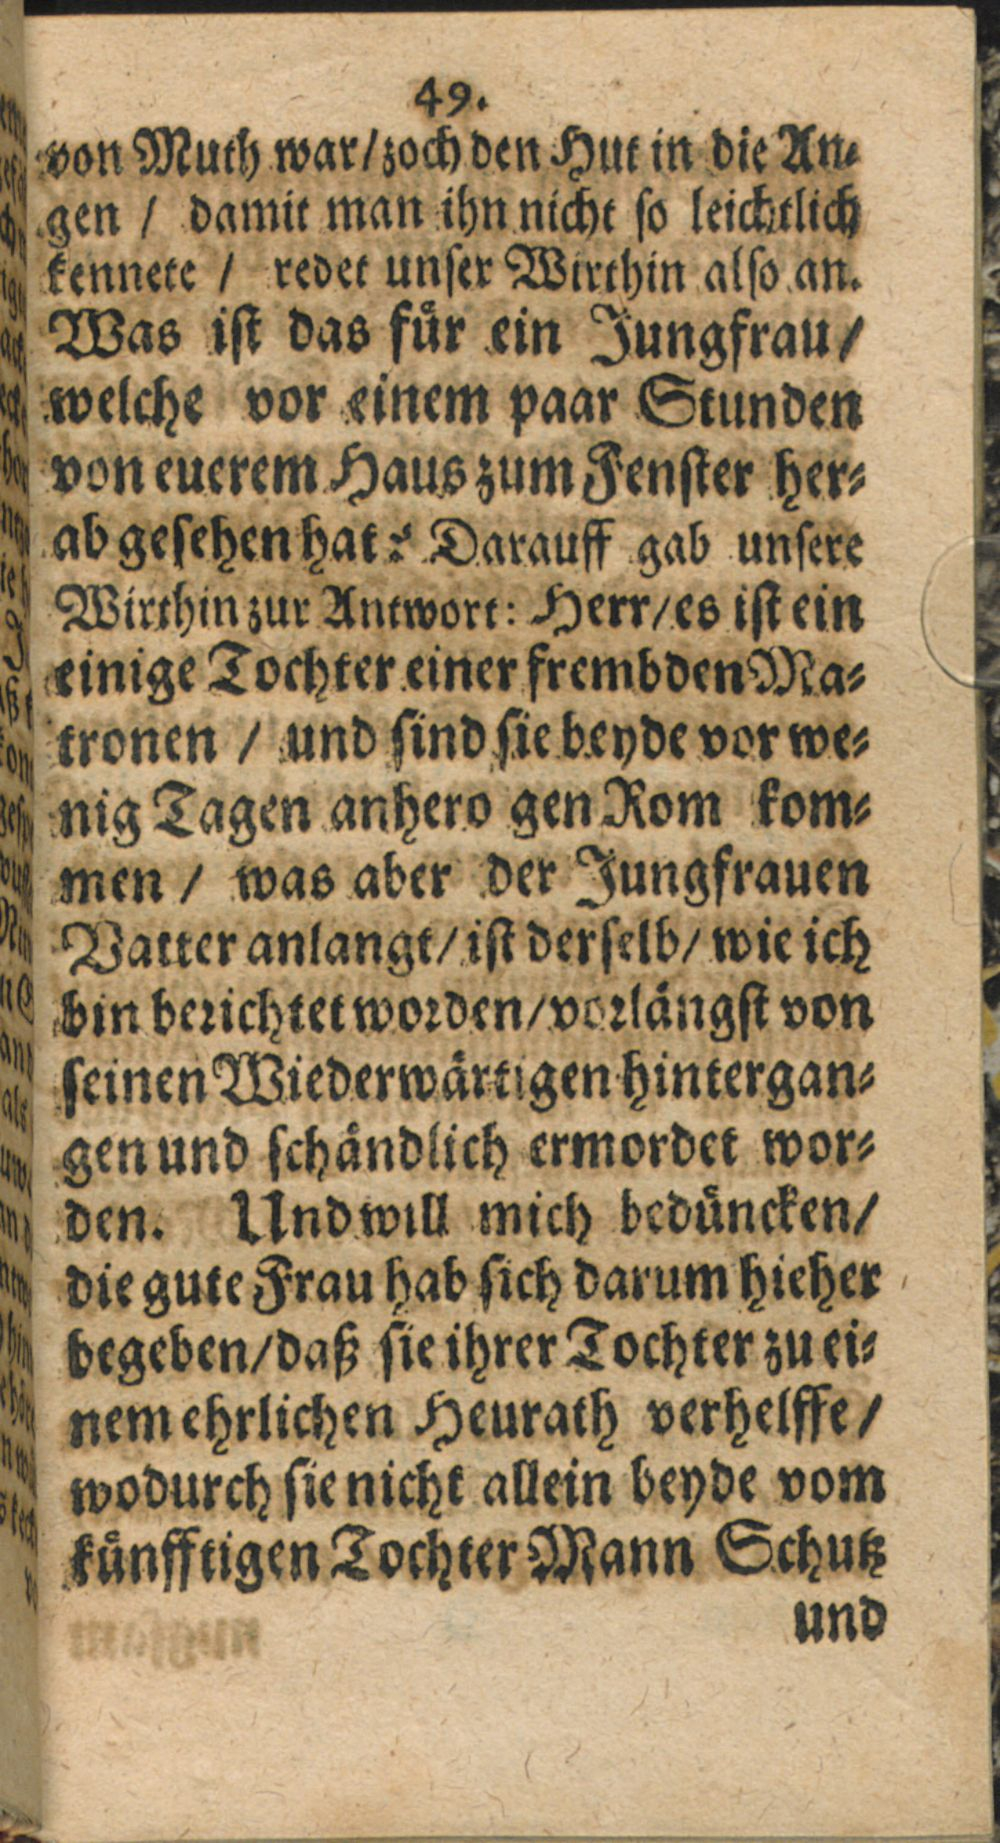 49.
von Muth war/zoch den Hut in die An⸗
gen / damit man ihn nicht so leichtlich
kennete / redet unser Wirthin also an.
Was ist das für ein Jungfrau/
welche vor einem paar Stunden
von euerem Haus zum Fenster her⸗
ab gesehen hat? Darauff gab unsere
Wirthin zur Antwort: Herr/es ist ein
einige Tochter einer frembden Ma⸗
tronen / und sind sie beyde vor we⸗
nig Tagen anhero gen Rom kom⸗
men / was aber der Jungfrauen
Vatter anlangt/ist derselb/wie ich
bin berichtet worden/vorlängst von
seinen Wiederwärtigen hintergan⸗
gen und schändlich ermordet wor⸗
den. Und will mich bedüncken/
die gute Frau hab sich darum hieher
begeben/daß sie ihrer Tochter zu ei⸗
nem ehrlichen Heurath verhelffe/
wodurch sie nicht allein beyde vom
künfftigen Tochter⸗Mann Schutz
und